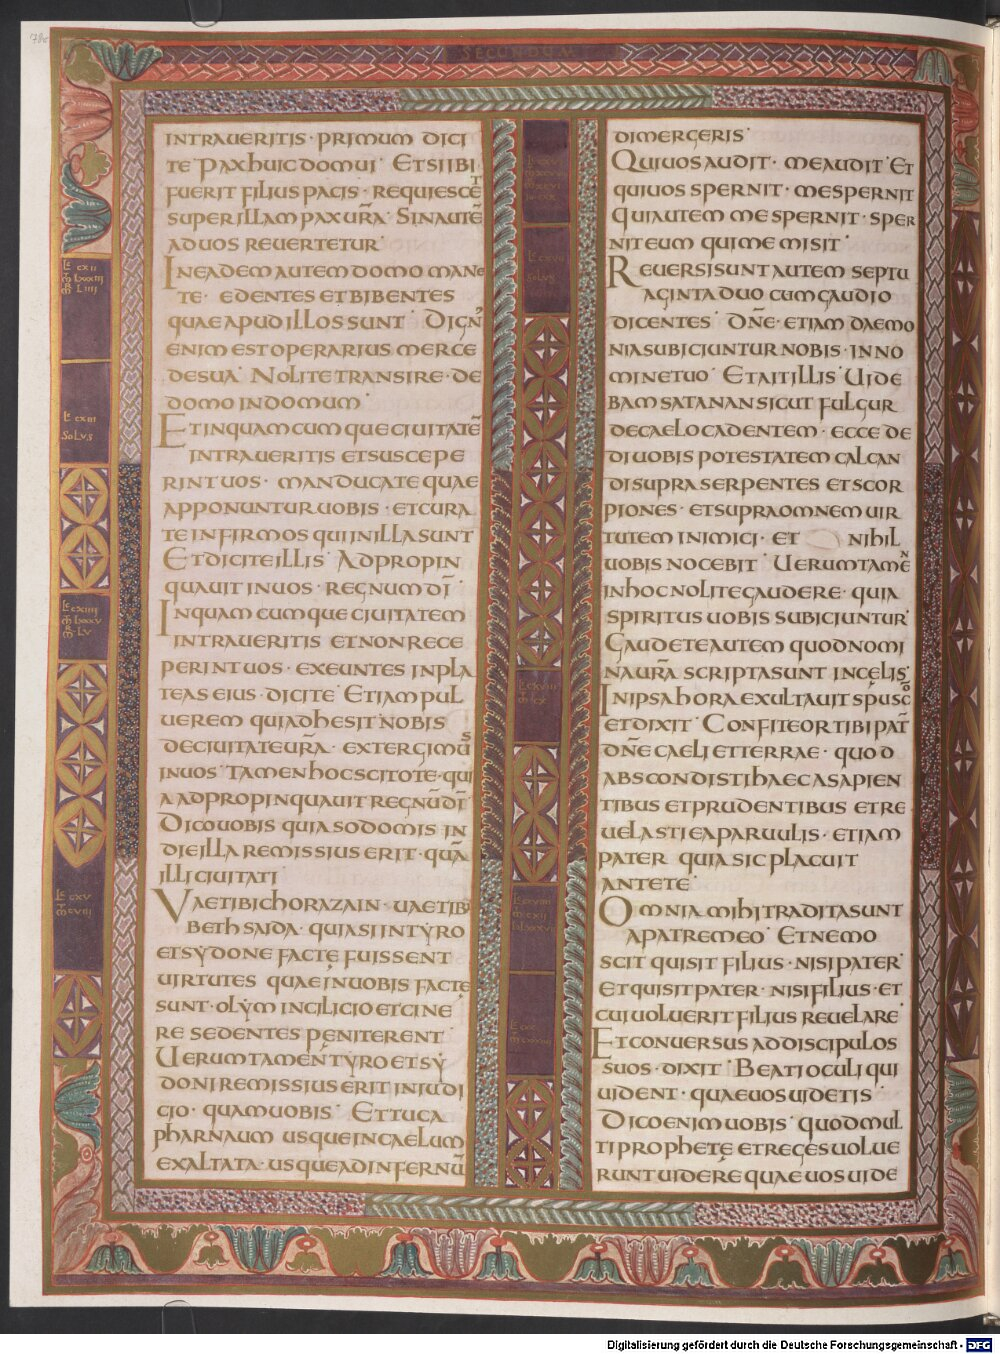 SECUNDUM
INTRAVERITIS · PRIMUM DICI
TE · PAX HUIC DOMUI · ET SI IBI
FUERIT FILIUS PACIS · REQUIESCET
SUPER ILLAM PAX URĀ · SIN AUTĒ
AD VOS REVERTETUR ·
IN EADEM AUTEM DOMO MANE
TE · EDENTES ET BIBENTES
QUAE APUD ILLOS SUNT · DIGN
ENIM EST OPERARIUS MERCE
DE SUA · NOLITE TRANSIRE · DE
DOMO IN DOMUM ·
ET IN QUAMCUMQUE CIVITATĒ
INTRAVERITIS ET SUSCEPE
RINT VOS · MANDUCATE QUAE
APPONUNTUR VOBIS · ET CURA
TE INFIRMOS QUI IN ILLA SUNT
ET DICITE ILLIS · ADPROPIN
QUAVIT IN VOS · REGNUM DĪ ·
IN QUAMCUMQUE CIVITATEM
INTRAVERITIS ET NON RECE
PERINT VOS · EXEUNTES IN PLA
TEAS EIUS · DICITE · ETIAM PUL
VEREM QUI ADHESIT NOBIS
DE CIVITATE URĀ · EXTERGIMUS
IN VOS · TAMEN HOC SCITOTE · QUI
A ADPROPINQUAVIT REGNŪ DĪ
DICO VOBIS QUIA SODOMIS IN
DIE ILLA REMISSIUS ERIT · QUĀ
ILLI CIVITATI ·
VAE TIBI CHORAZAIN · VAE TIBI
BETHSAIDA · QUIA SI IN TYRO
ET SYDONE FACTĘ FUISSENT
VIRTUTES QUAE IN VOBIS FACTĘ
SUNT · OLYM IN CILICIO ET CINE
RE SEDENTES PENITERENT ·
VERUMTAMEN TYRO ET SY
DONI REMISSIUS ERIT IN IUDI
CIO · QUAM VOBIS · ET TU CA
PHARNAUM USQUE IN CAELUM
EXALTATA · USQUE AD INFERNŪ
DIMERGERIS ·
QUI VOS AUDIT · ME AUDIT · ET
QUI VOS SPERNIT · ME SPERNIT
QUI AUTEM ME SPERNIT · SPER
NIT EUM QUI ME MISIT ·
REVERSI SUNT AUTEM SEPTU
AGINTA DUO CUM GAUDIO
DICENTES · DN̄E · ETIAM DAEMO
NIA SUBICIUNTUR NOBIS · IN NO
MINE TUO · ET AIT ILLIS · VIDE
BAM SATANAN SICUT FULGUR
DE CAELO CADENTEM · ECCE DE
DI VOBIS POTESTATEM CALCAN
DI SUPRA SERPENTES ET SCOR
PIONES · ET SUPRA OMNEM VIR
TUTEM INIMICI · ET NIHIL
VOBIS NOCEBIT · VERUMTAMEN
IN HOC NOLITE GAUDERE · QUIA
SPIRITUS VOBIS SUBICIUNTUR ·
GAUDETE AUTEM QUOD NOMI
NA URĀ SCRIPTA SUNT IN CĘLIS ·
IN IPSA HORA EXULTAVIT SPU SCO
ET DIXIT · CONFITEOR TIBI PAT
DN̄E CAELI ET TERRAE · QUOD
ABSCONDISTI HAEC A SAPIEN
TIBUS ET PRUDENTIBUS ET RE
VELASTI EA PARVULIS · ETIAM
PATER QUIA SIC PLACUIT
ANTE TE ·
OMNIA MIHI TRADITA SUNT
A PATRE MEO · ET NEMO
SCIT QUI SIT FILIUS · NISI PATER ·
ET QUI SIT PATER · NISI FILIUS · ET
CUI VOLUERIT FILIUS REVELARE ·
ET CONVERSUS AD DISCIPULOS
SUOS · DIXIT · BEATI OCULI QUI
VIDENT · QUAE VOS VIDETIS ·
DICO ENIM VOBIS · QUOD MUL
TI PROPHETĘ ET REGES VOLUE
RUNT VIDERE QUAE VOS VIDE
LE CXII
M LXXXIIII
R LIIII
LE CXIII
SOLVS
LE CXIIII
M LXXXV
R LV
LE CXV
M CVIII
SOLVS
Digitalisierung gefördert durch die Deutsche Forschungsgemeinschaft - DFG